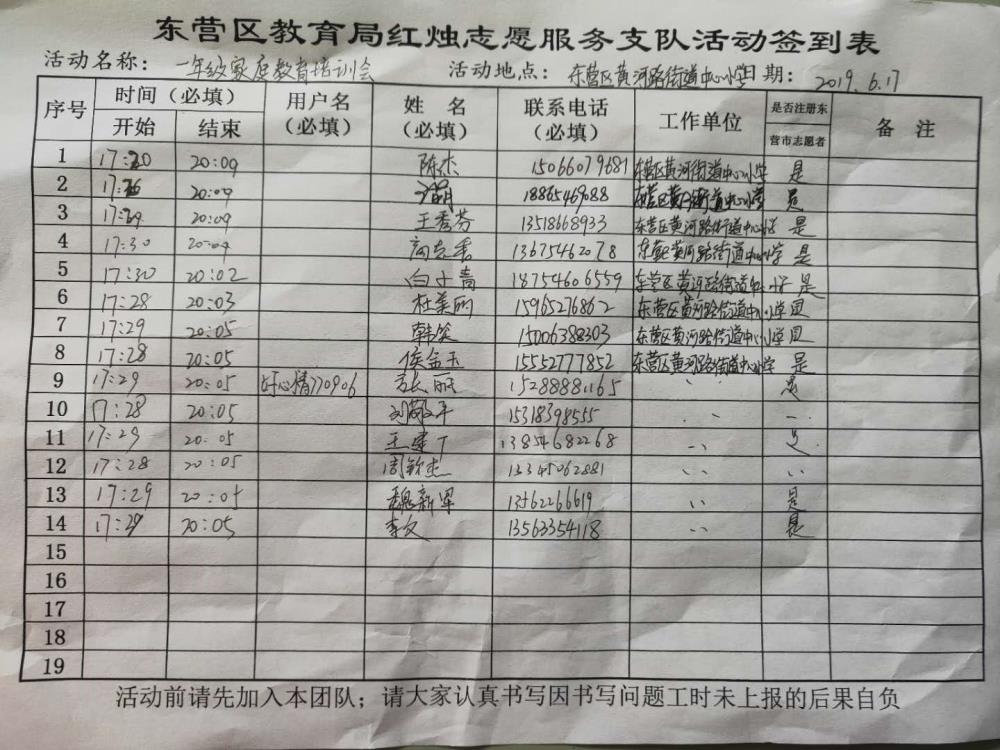 东营区教育局红烛志愿服务支队活动签到表
活动名称： 一年级家庭教育培训会 活动地点： 东营区黄河路街道中心小学 日期： 2019.6.17
序号 时间（必填） 用户名（必填） 姓 名（必填） 联系电话（必填） 工作单位 是否注册东营市志愿者 备 注
开始 结束
1 17:20 20:09 陈杰 15066079681 东营区黄河街道中心小学 是
2 20:09 18865469088 是
3 20:09 王秀芬 13518668933 东营区黄河路街道中心小学 是
4 17:30 20:09 13675462078 东营区黄河路街道中心小学 是
5 17:30 20:02 18754606559 东营区黄河路街道中心小学 是
6 17:28 20:03 杜美丽 15965276862 东营区黄河路街道中心小学 是
7 17:29 20:05 韩笑 15006388303 东营区黄河路街道中心小学 是
8 17:28 20:05 侯金玉 15552777852 东营区黄河路街道中心小学 是
9 17:29 20:05 好心情770906 是
10 17:28 20:05 刘敬平 15318398555
11 17:29 20:05 王建丁 13854682268 是
12 17:28 20:05 周钦杰
13 17:29 20:05 魏新军 13562266619 是
14 17:29 20:05 李文 13563354118 是
15
16
17
18
19
活动前请先加入本团队；请大家认真书写因书写问题工时未上报的后果自负